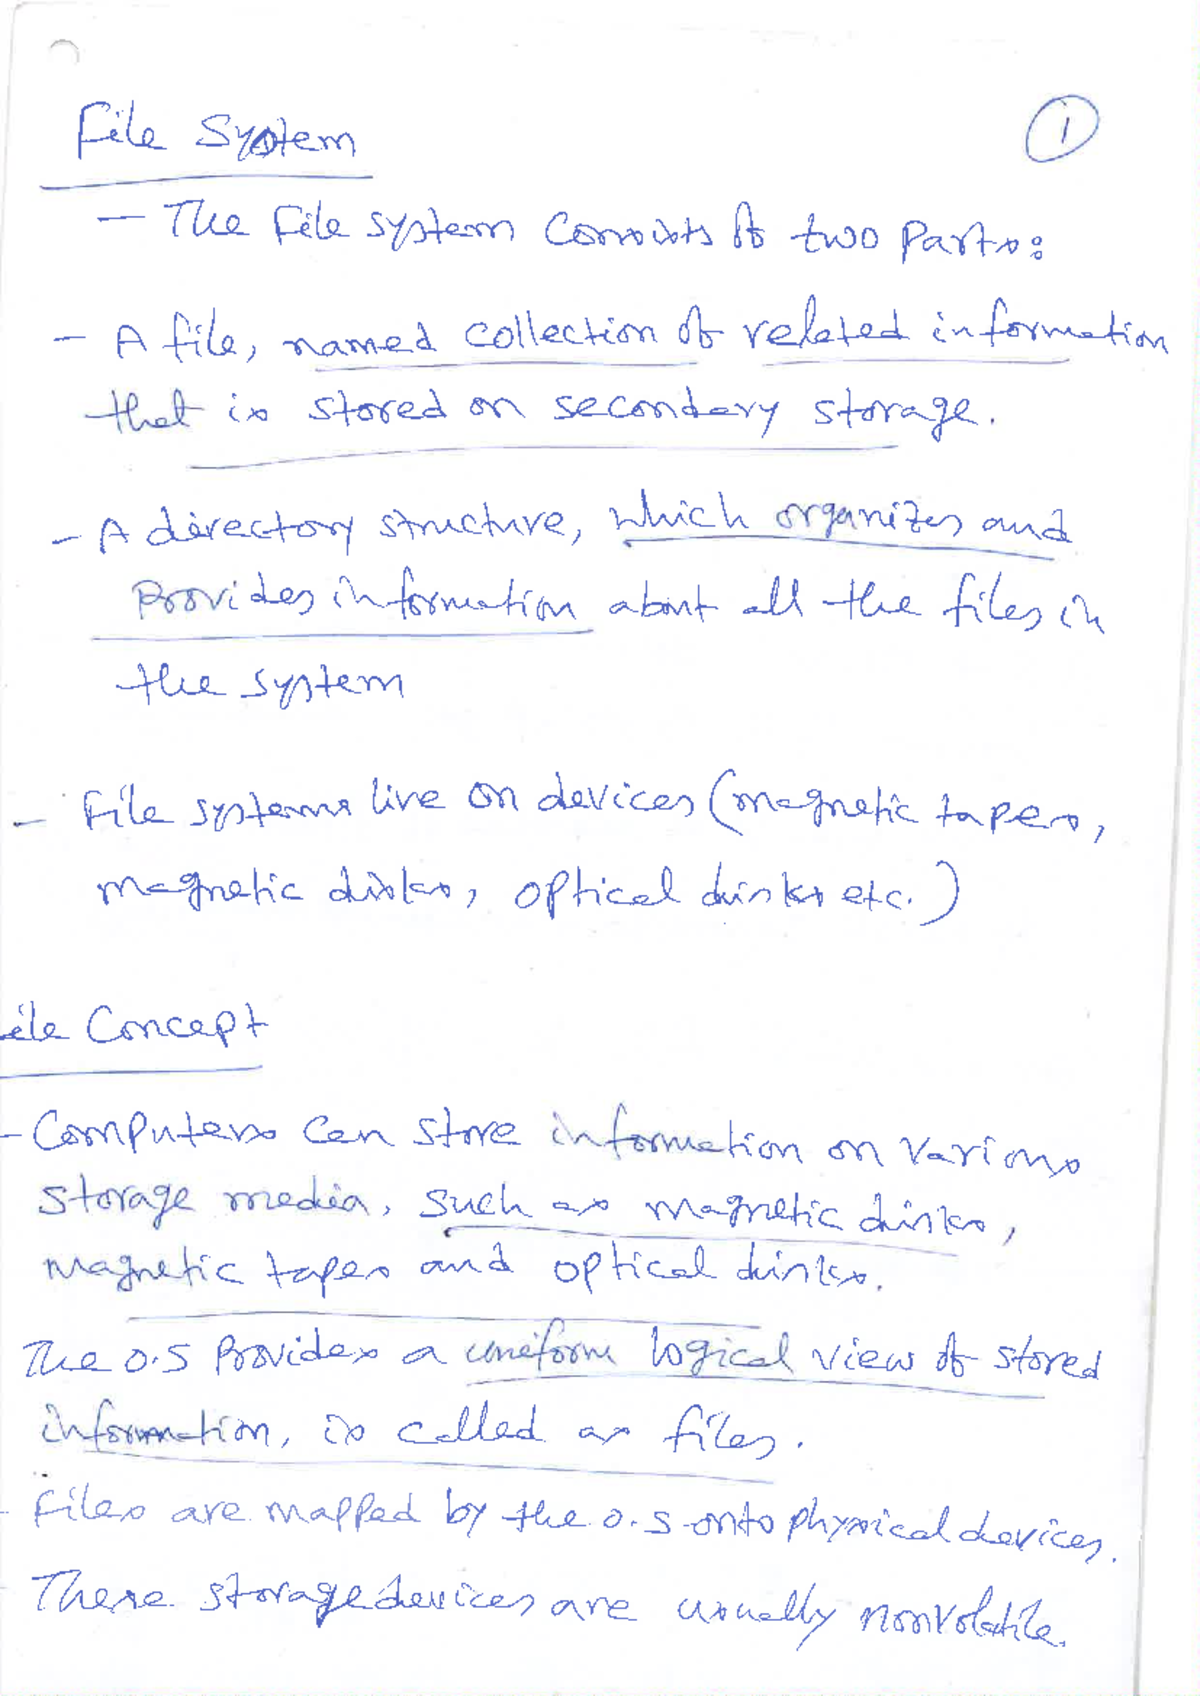 File System
1
- The File system Consists of two Parts:
- A file, named collection of related information
that is stored on secondary storage.
- A directory structure, which organizes and
Provides information about all the files in
the system
- File systems live on devices (magnetic tapes,
magnetic disks, optical disks etc.)
ile Concept
- Computers Can store information on various
storage media, such as magnetic disks,
magnetic tapes and optical disks.
The O.S Provides a uniform logical view of stored
information, is called as files.
- Files are mapped by the O.S onto physical devices.
- These storage devices are usually nonvolatile.